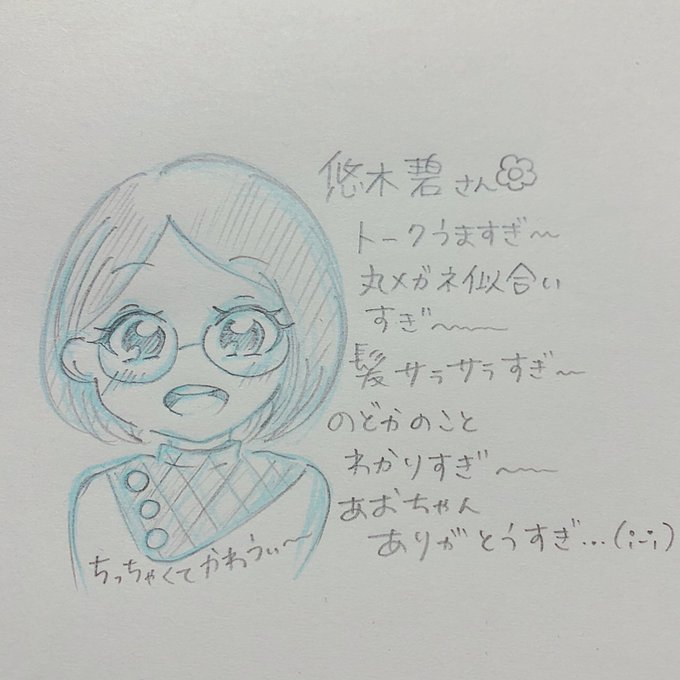 悠木碧さん
トークうますぎ〜
丸メガネ似合い
すぎ〜
髪サラサラすぎ〜
のどかのこと
わかりすぎ〜
あおちゃん
ありがとうすぎ…(;-;)
ちっちゃくてかわうぃ〜